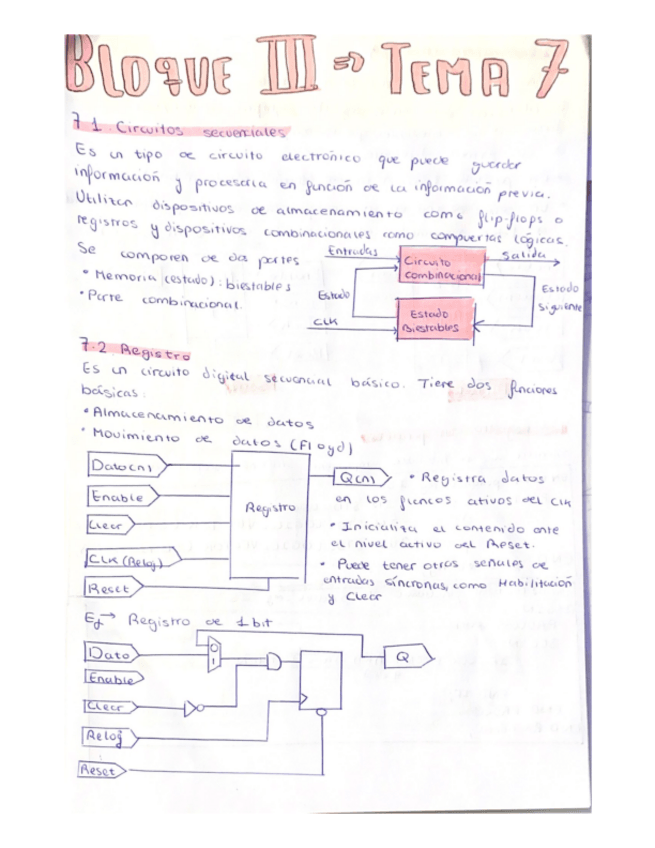 BLOQUE III => TEMA 7
7.1. Circuitos secuenciales
Es un tipo de circuito electrónico que puede guardar
información y procesarla en función de la información previa.
Utilizan dispositivos de almacenamiento como flip-flops o
registros y dispositivos combinacionales como compuertas lógicas.
Se componen de dos partes
• Memoria (estado): biestables
• Parte combinacional.
Entradas
Circuito
combinacional
Salida
Estado
Estado
siguiente
CLK
Estado
Biestables
7.2. Registro
Es un circuito digital secuencial básico. Tiene dos funciones
básicas:
• Almacenamiento de datos
• Movimiento de datos (Floyd)
Dato(n)
Enable
Clear
CLK (Reloj)
Reset
Registro
Q(n)
• Registra datos
en los flancos ativos del Clk
• Inicializa el contenido ante
el nivel activo del Reset.
• Puede tener otras señales de
entradas síncronas, como Habilitación
y Clear
Ej → Registro de 1 bit
Dato
Enable
Clear
Reloj
Reset
0
1
Q